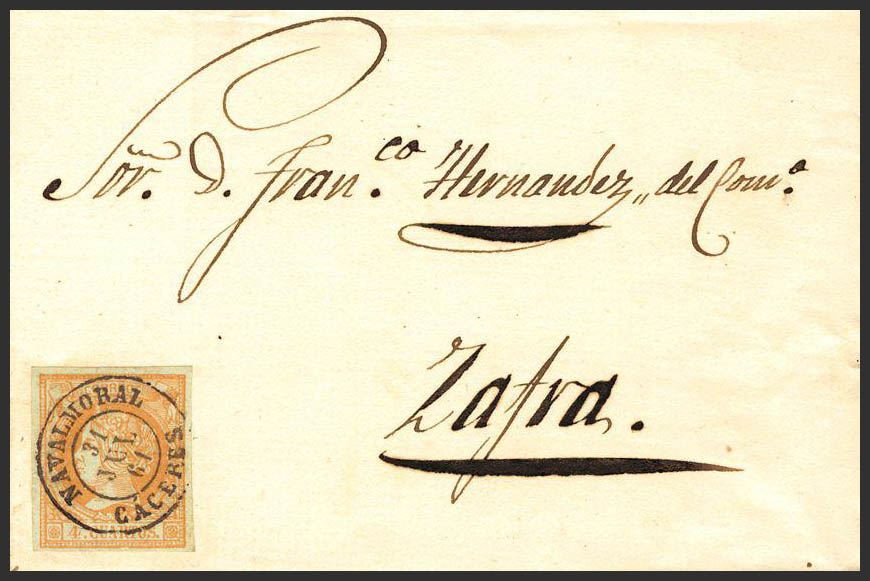 Sor. D. Fran.co Hernandez,, del Como.
Zafra.
NAVALMORAL
31
JUL
61
CÁCERES
4 CUARTOS.